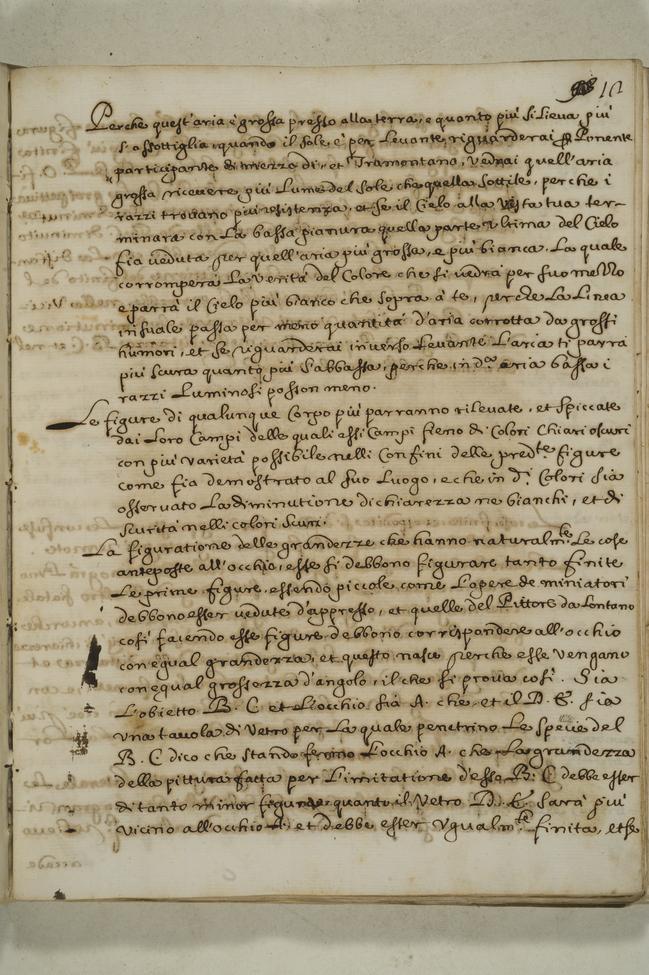 10
Perche quest'aria è grossa presso alla terra, e quanto più si lieva più
s'assottiglia, quando il sole è per Levante riguarderai Ponente
participante di mezzo di, et Tramontano, vedrai quell'aria
grossa ricevere più lume del sole che quella sottile, perche i
razzi trovano più resistenza, et se il Cielo alla vista tua ter-
minarà con La bassa pianura quella parte ultima del Cielo
fia veduta per quell'aria più grossa, e più bianca. La quale
corromperà La verità del Colore che si vedrà per suo mezzo
e parrà il Cielo più bianco che sopra à te, perche La Linea
visuale passa per meno quantità d'aria corrotta da grossi
humori, et se riguarderai inverso Levante L'aria ti parrà
più scura quanto più s'abbassa, perche in d.ª aria bassa i
razzi Luminosi posson meno.
Le figure di qualunque Corpo più parranno rilevate, et spiccate
dai Loro Campi delle quali essi Campi sieno di Colori Chiari oscuri
con più varietà possibile nelli Confini delle pred.te figure
come fia demostrato al suo Luogo, e che in d.i Colori sia
osservato La diminutione di chiarezza ne bianchi, et di
scurità nelli colori scuri.
La figuratione delle grandezze che hanno naturalm.te Le cose
anteposte all'occhio, esse si debbono figurare tanto finite
Le prime figure, essendo piccole come L'opere de miniatori
debbono esser vedute d'appresso, et quelle del Pittore da Lontano
così facendo esse figure debbono corrispondere all'occhio
con egual grandezza, et questo nasce perche esse vengano
con egual grossezza d'angolo, il che si prova così. Sia
L'obietto B. C et L'occhio sia A. che, et il D. E. sia
una tavola di Vetro per La quale penetrino Le spetie del
B. C dico che stando fermo L'occhio A. che La grandezza
della pittura fatta per L'imitatione d'essa B. C debbe esser
di tanto minor figura quanto il Vetro D. E. sarà più
vicino all'occhio A. et debbe esser Ugualm.te finita, et se